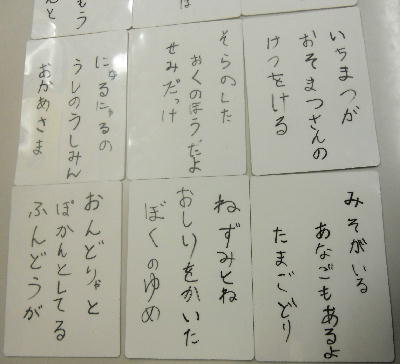 いちまつが
おそまつさんの
けつをける
そらのした
おくのほうだよ
せみだっけ
にゅるにゅるの
うしのうしみん
おかめさま
みそがいる
あなごもあるよ
たまごどり
ねずみとね
おしりをかいた
ぼくのゆめ
おんどりゃと
ぽかんとしてる
ふんどうが